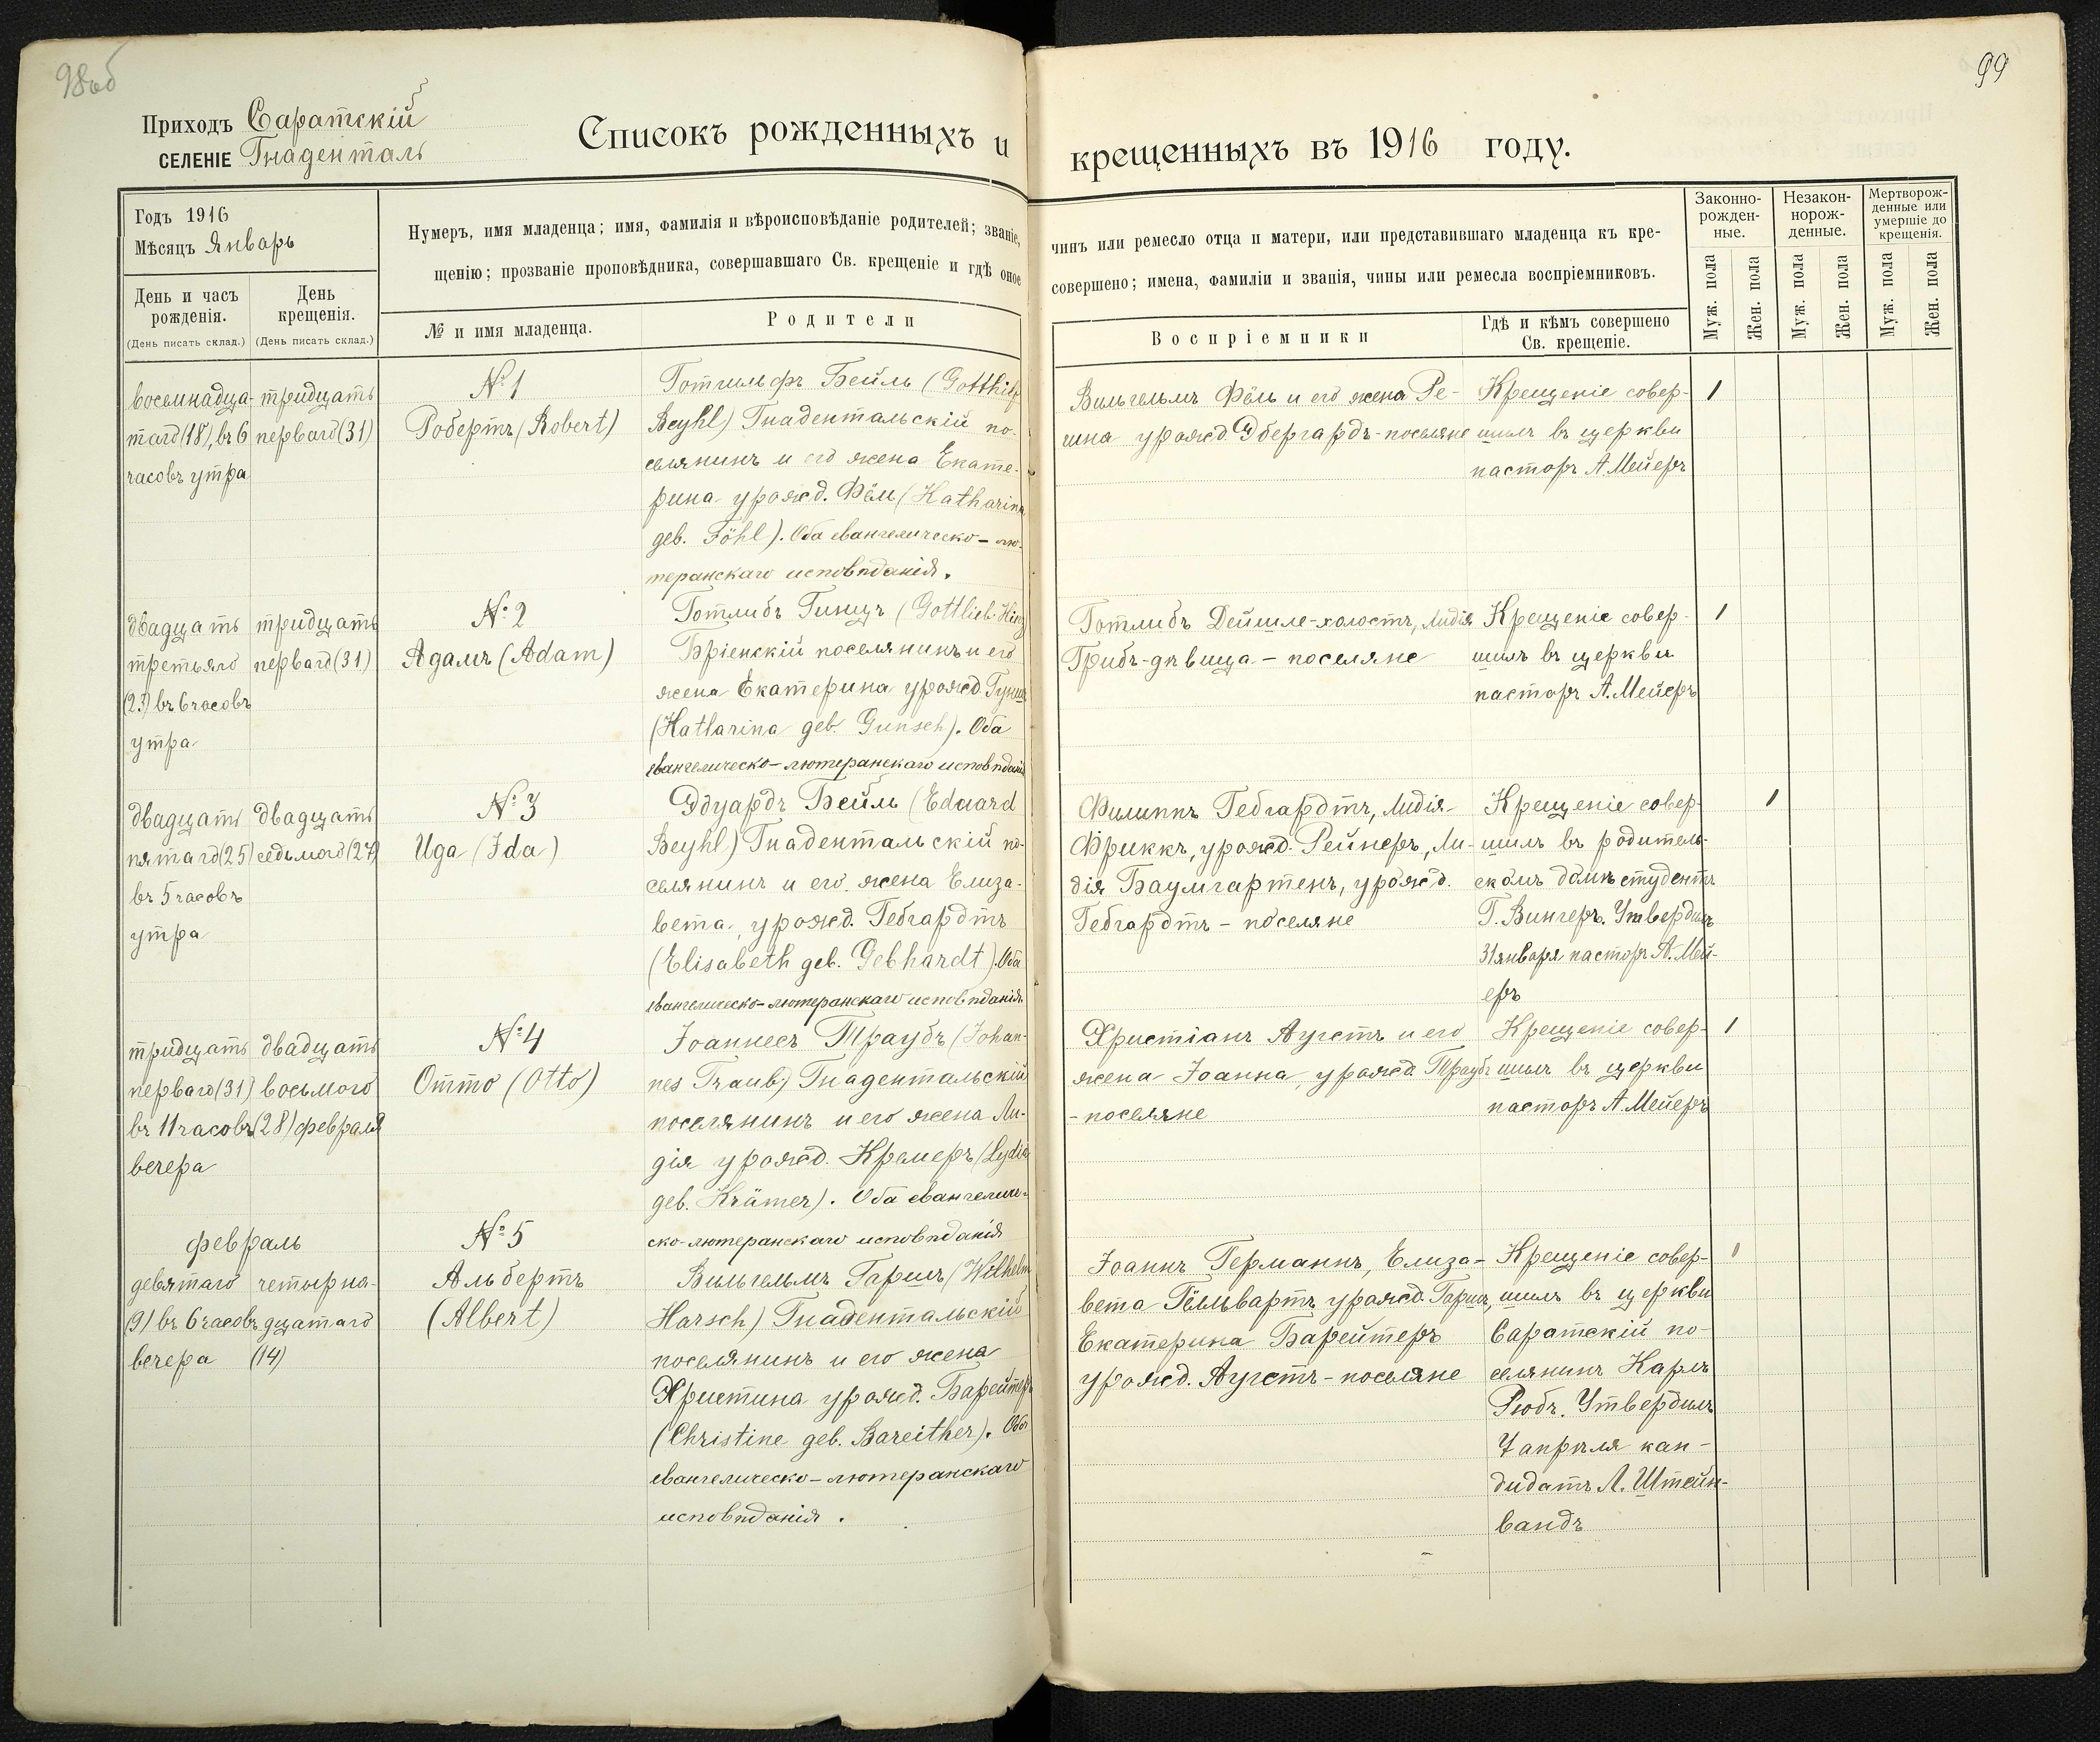 98об
99
Приходъ Саратскій
СЕЛЕНІЕ Гнаденталь
Списокъ рожденныхъ и крещенныхъ въ 1916 году.
Годъ 1916
Мѣсяцъ Январь
День и часъ рожденія.
(День писать склад.)
День крещенія.
(День писать склад.)
Нумеръ, имя младенца; имя, фамилія и вѣроисповѣданіе родителей; званіе, чинъ или ремесло отца и матери, или представившаго младенца къ кре-
щенію; прозваніе проповѣдника, совершавшаго Св. крещеніе и гдѣ оное совершено; имена, фамиліи и званія, чины или ремесла воспріемниковъ.
№ и имя младенца.
Родители
Воспріемники
Гдѣ и кѣмъ совершено
Св. крещеніе.
Законно-
рожден-
ные.
Незакон-
норож-
денные.
Мертворож-
денные или
умершіе до
крещенія.
Муж. пола
Жен. пола
Муж. пола
Жен. пола
Муж. пола
Жен. пола
восемнадца-
таго (18), въ 6
часовъ утра
тридцать
перваго (31)
№ 1
Робертъ (Robert)
Готгильфъ Бейль (Gotthilf
Beyhl) Гнадентальскій по-
селянинъ и его жена Екате-
рина урожд. Фёль (Katharina
geb. Föhl). Оба евангелическо-лю-
теранскаго исповѣданія.
Вильгельмъ Фёль и его жена Ре-
гина урожд. Эбергардъ-поселяне
Крещеніе совер-
шилъ въ церкви
пасторъ А. Мейеръ
1
двадцать
третьяго
(23) въ 6 часовъ
утра
тридцать
перваго (31)
№ 2
Адамъ (Adam)
Готлибъ Гинцъ (Gottlieb Hinz)
Бріенскій поселянинъ и его
жена Екатерина урожд. Гуншъ
(Katharina geb. Gunsch). Оба
евангелическо-лютеранскаго исповѣданія
Готлибъ Дейшле-холостъ, Лидія
Грибъ-дѣвица - поселяне
Крещеніе совер-
шилъ въ церкви
пасторъ А. Мейеръ
1
двадцать
пятаго (25)
въ 5 часовъ
утра
двадцать
седьмого (27)
№ 3
Ида (Ida)
Эдуардъ Бейль (Eduard
Beyhl) Гнадентальскій по-
селянинъ и его жена Елиза-
вета, урожд. Гебгардтъ
(Elisabeth geb. Gebhardt). Оба
евангелическо-лютеранскаго исповѣданія
Филиппъ Гебгардтъ, Лидія
Фриккъ, урожд. Рейнеръ, Ли-
дія Баумгартенъ, урожд.
Гебгардтъ - поселяне
Крещеніе совер-
шилъ въ родитель-
скомъ домѣ студентъ
Г. Вингеръ. Утвердилъ
31 января пасторъ А. Мей-
еръ
1
тридцать
перваго (31)
въ 11 часовъ
вечера
двадцать
восьмого
(28) февраля
№ 4
Отто (Otto)
Іоаннесъ Траубъ (Johan-
nes Traub) Гнадентальскій
поселянинъ и его жена Ли-
дія урожд. Кремеръ (Lydia
geb. Krämer). Оба евангеличе-
ско-лютеранскаго исповѣданія
Христіанъ Аугстъ и его
жена Іоанна, урожд. Траубъ
- поселяне
Крещеніе совер-
шилъ въ церкви
пасторъ А. Мейеръ
1
февраль
девятаго
(9) въ 6 часовъ
вечера
четырна-
дцатаго
(14)
№ 5
Альбертъ
(Albert)
Вильгельмъ Гаршъ (Wilhelm
Harsch) Гнадентальскій
поселянинъ и его жена
Христина урожд. Барейтеръ
(Christine geb. Bareither). Оба
евангелическо-лютеранскаго
исповѣданія.
Іоаннъ Германнъ, Елиза-
вета Гёльвартъ урожд. Гаршъ,
Екатерина Барейтеръ
урожд. Аугстъ - поселяне
Крещеніе совер-
шилъ въ церкви
Саратскій по-
селянинъ Карлъ
Рюбъ. Утвердилъ
7 апрѣля кан-
дидатъ Л. Штейн-
вандъ
1